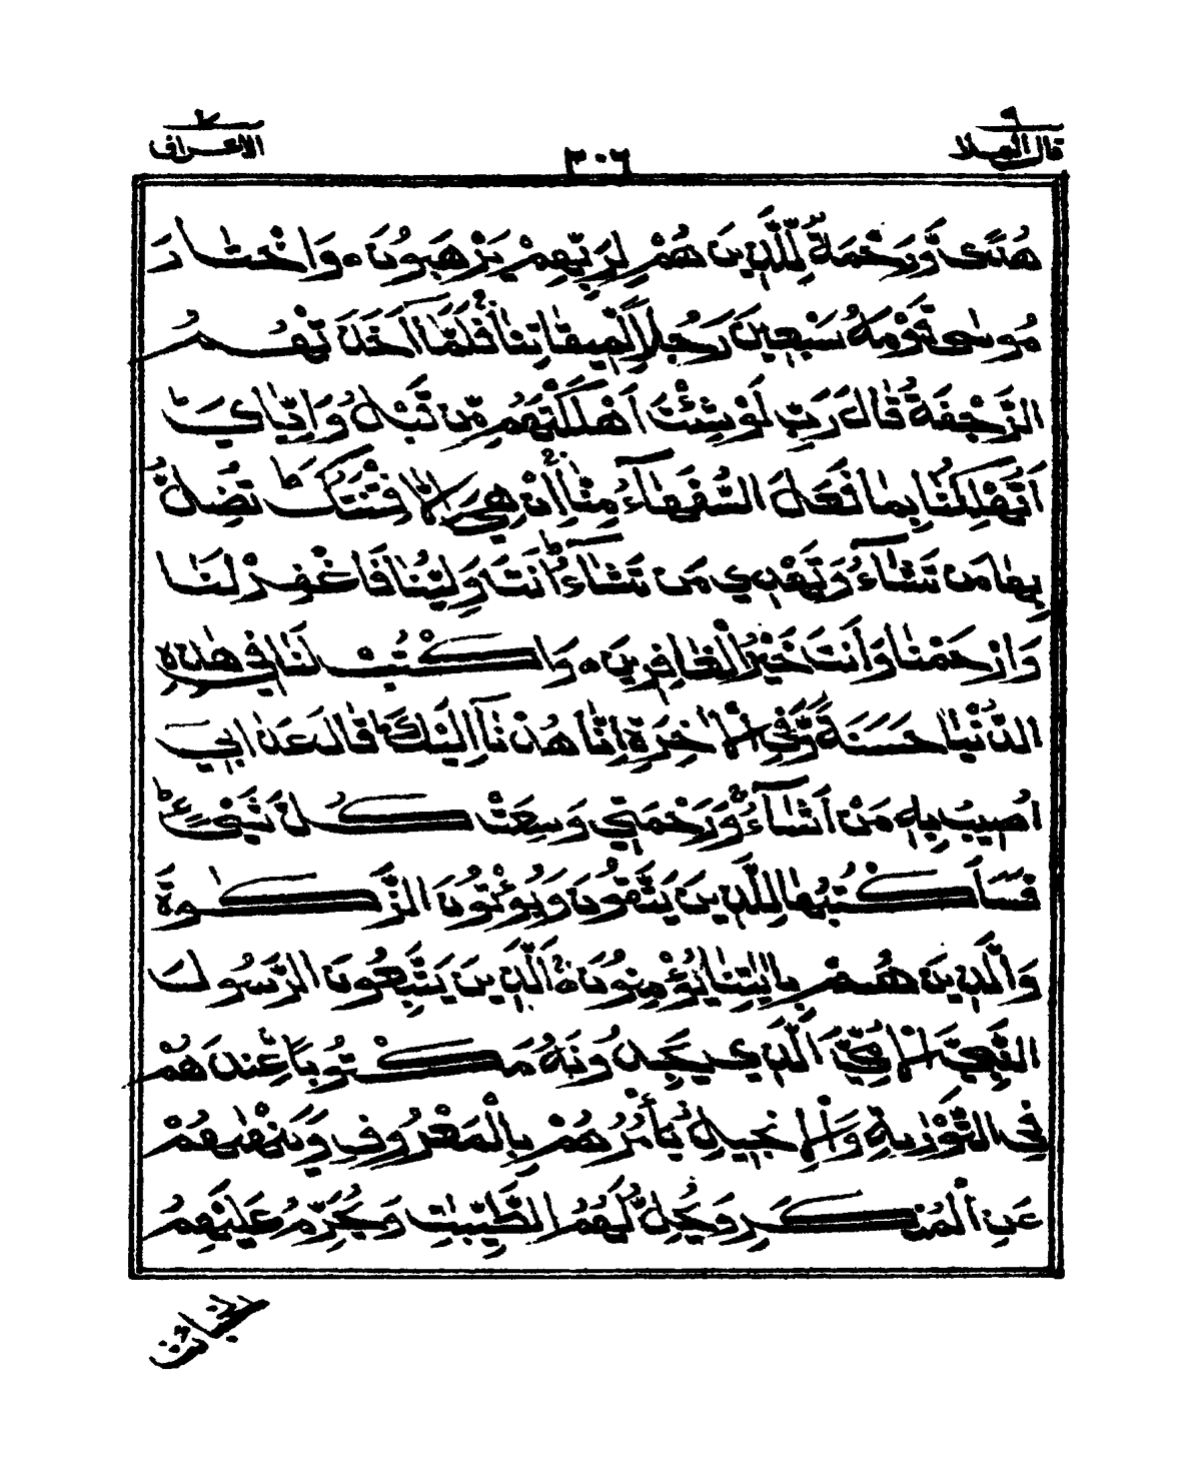 قال الملا ٩
٣٠٦
الاعراف ٧
هُدًى وَّرَحْمَةٌ لِّلَّذِيْنَ هُمْ لِرَبِّهِمْ يَرْهَبُوْنَ ۰ وَاخْتَارَ
مُوْسٰى قَوْمَهٗ سَبْعِيْنَ رَجُلًا لِّمِيْقَاتِنَا ۚ فَلَمَّآ اَخَذَتْهُمُ
الرَّجْفَةُ قَالَ رَبِّ لَوْ شِئْتَ اَهْلَكْتَهُمْ مِّنْ قَبْلُ وَاِيَّايَ ؕ
اَتُهْلِكُنَا بِمَا فَعَلَ السُّفَهَآءُ مِنَّا ۚ اِنْ هِيَ اِلَّا فِتْنَتُكَ ؕ تُضِلُّ
بِهَا مَنْ تَشَآءُ وَتَهْدِيْ مَنْ تَشَآءُ ؕ اَنْتَ وَلِيُّنَا فَاغْفِرْ لَنَا
وَارْحَمْنَا وَاَنْتَ خَيْرُ الْغَافِرِيْنَ ۰ وَاكْتُبْ لَنَا فِيْ هٰذِهِ
الدُّنْيَا حَسَنَةً وَّفِي الْاٰخِرَةِ اِنَّا هُدْنَآ اِلَيْكَ ؕ قَالَ عَذَابِيْٓ
اُصِيْبُ بِهٖ مَنْ اَشَآءُ ۚ وَرَحْمَتِيْ وَسِعَتْ كُلَّ شَيْءٍ ؕ
فَسَاَكْتُبُهَا لِلَّذِيْنَ يَتَّقُوْنَ وَيُؤْتُوْنَ الزَّكٰوةَ
وَالَّذِيْنَ هُمْ بِاٰيٰتِنَا يُؤْمِنُوْنَ ۚ اَلَّذِيْنَ يَتَّبِعُوْنَ الرَّسُوْلَ
النَّبِيَّ الْاُمِّيَّ الَّذِيْ يَجِدُوْنَهٗ مَكْتُوْبًا عِنْدَهُمْ
فِي التَّوْرٰىةِ وَالْاِنْجِيْلِ يَاْمُرُهُمْ بِالْمَعْرُوْفِ وَيَنْهٰىهُمْ
عَنِ الْمُنْكَرِ وَيُحِلُّ لَهُمُ الطَّيِّبٰتِ وَيُحَرِّمُ عَلَيْهِمُ
الخبائث